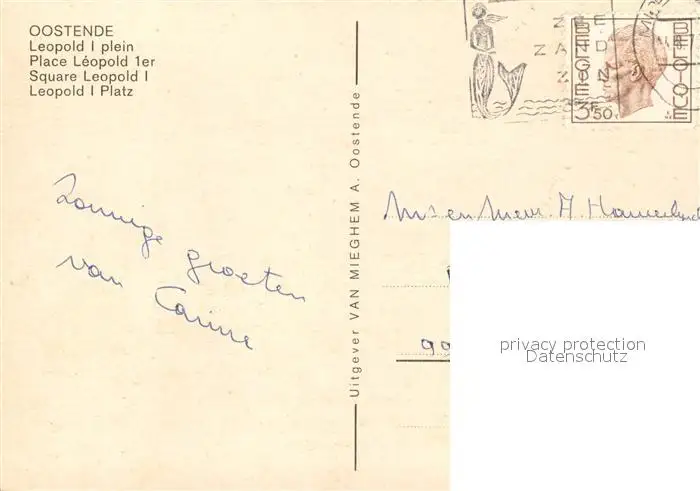 OOSTENDE
Leopold I plein
Place Léopold 1er
Square Leopold I
Leopold I Platz
Zonnige groeten
van Carine
Uitgever VAN MIEGHEM A. Oostende
ZEE
ZAND
ZON
BELGIE
BELGIQUE
3F50
Mr en Mevr A
99
privacy protection
Datenschutz